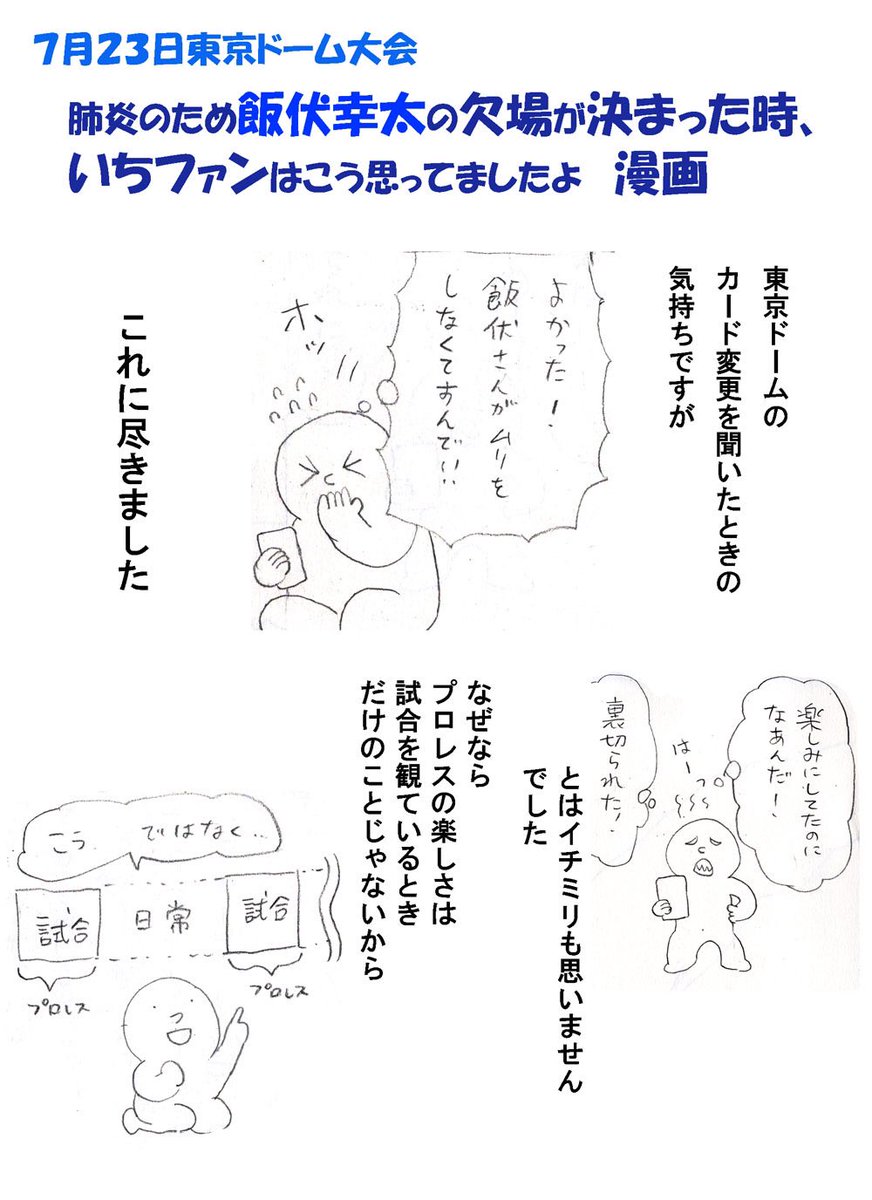 7月23日東京ドーム大会
肺炎のため飯伏幸太の欠場が決まった時、
いちファンはこう思ってましたよ 漫画
東京ドームの
カード変更を聞いたときの
気持ちですが
よかった!
飯伏さんがムリを
しなくてすんで!!
ホッ
これに尽きました
楽しみにしてたのに
なあんだ!
はーっ
裏切られた!
とはイチミリも思いません
でした
なぜなら
プロレスの楽しさは
試合を観ているとき
だけのことじゃないから
こう ではなく…
試合
日常
試合
プロレス
プロレス